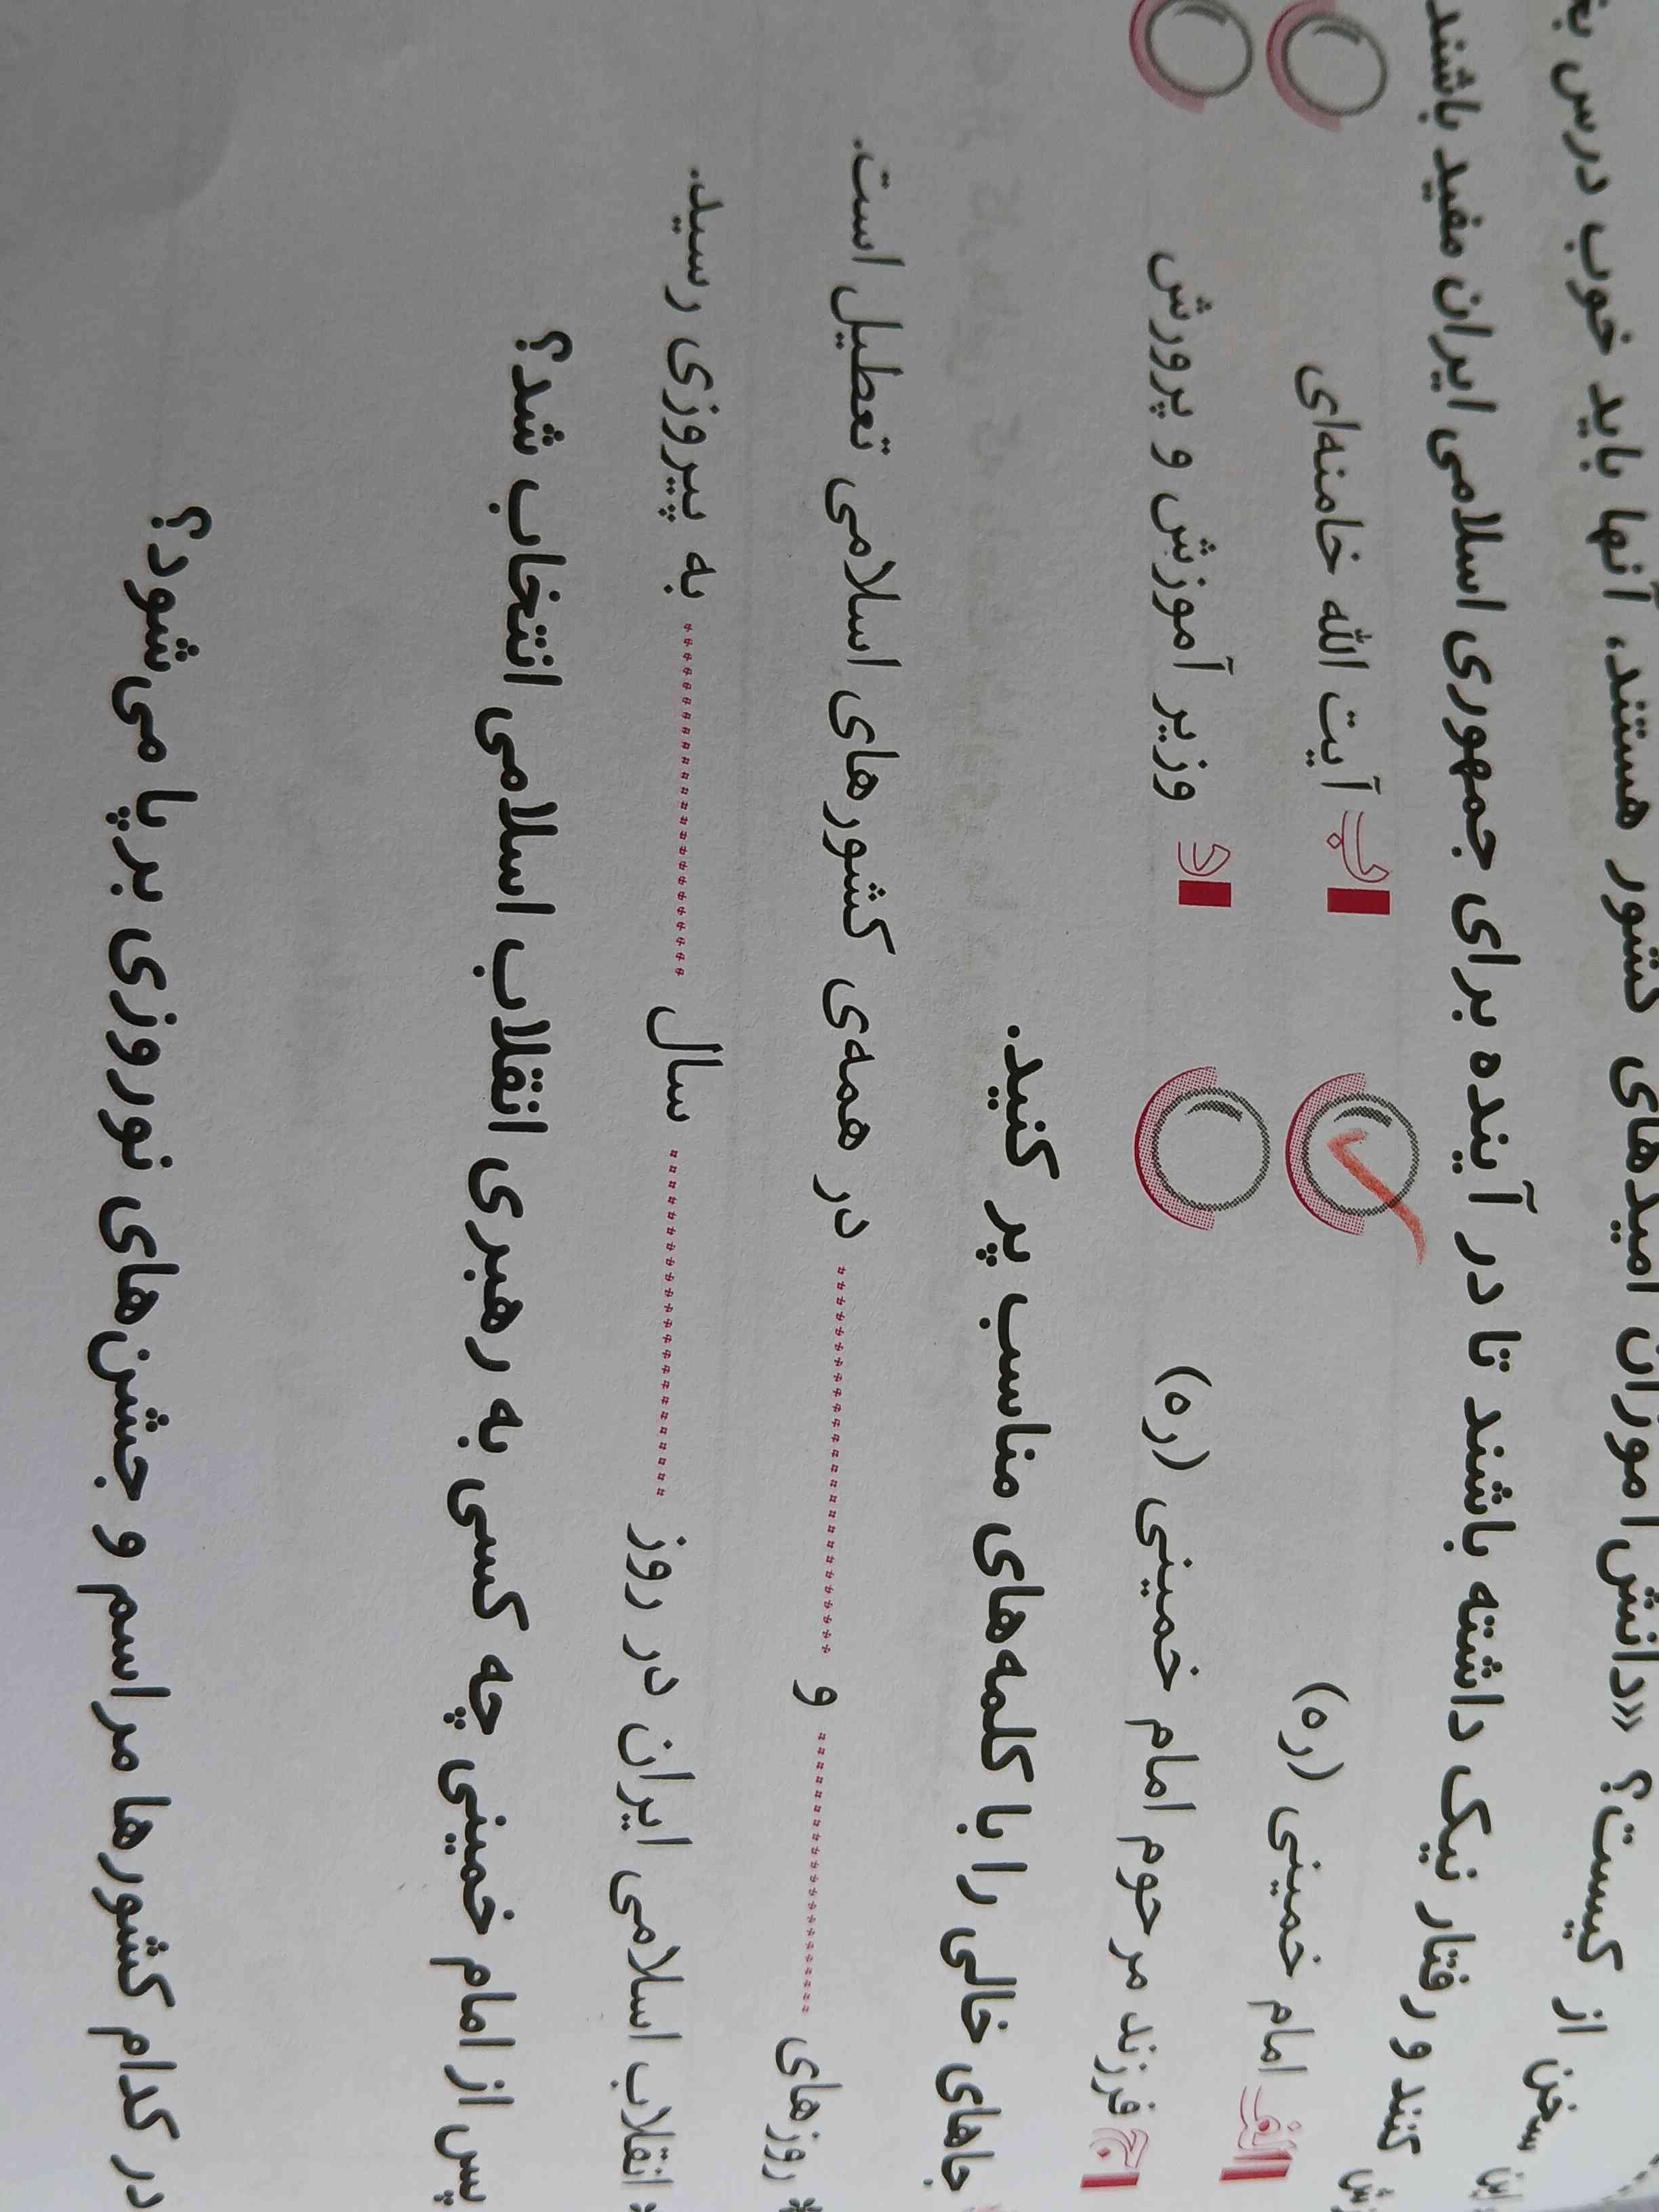 سخن از کیست؟ «دانش‌آموزان امیدهای کشور هستند، آنها باید خوب درس
کنند و رفتار نیک داشته باشند تا در آینده برای جمهوری اسلامی ایران مفید باشند
الف امام خمینی (ره) ب آیت الله خامنه‌ای
ج فرزند مرحوم امام خمینی (ره) د وزیر آموزش و پرورش
جاهای خالی را با کلمه‌های مناسب پر کنید.
* روزهای .................... و .................... در همه‌ی کشورهای اسلامی تعطیل است.
* انقلاب اسلامی ایران در روز .................... سال .................... به پیروزی رسید.
پس از امام خمینی چه کسی به رهبری انقلاب اسلامی انتخاب شد؟
در کدام کشورها مراسم و جشن‌های نوروزی برپا می‌شود؟